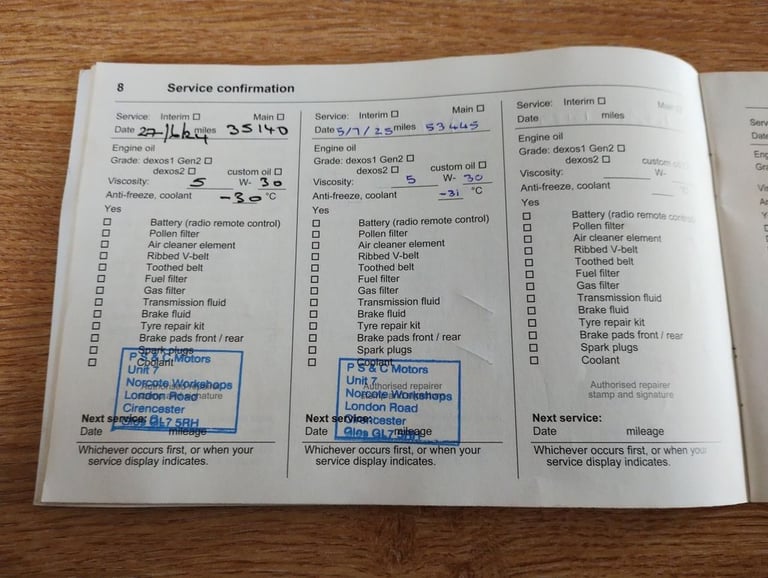 8 Service confirmation
Service: Interim Main
Date miles 35140
Engine oil
Grade: dexos1 Gen2
dexos2 custom oil
Viscosity: 5 W- 30
Anti-freeze, coolant -30 °C
Yes
Battery (radio remote control)
Pollen filter
Air cleaner element
Ribbed V-belt
Toothed belt
Fuel filter
Gas filter
Transmission fluid
Brake fluid
Tyre repair kit
Brake pads front / rear
Spark plugs
Coolant
P S & C Motors
Unit 7
Norcote Workshops
London Road
Cirencester
Glos GL7 5RH
Next service:
Date mileage
Whichever occurs first, or when your
service display indicates.
Service: Interim Main
Date 5/7/25 miles 53445
Engine oil
Grade: dexos1 Gen2
dexos2 custom oil
Viscosity: 5 W- 30
Anti-freeze, coolant -31 °C
Yes
Battery (radio remote control)
Pollen filter
Air cleaner element
Ribbed V-belt
Toothed belt
Fuel filter
Gas filter
Transmission fluid
Brake fluid
Tyre repair kit
Brake pads front / rear
Spark plugs
Coolant
Authorised repairer
P S & C Motors
Unit 7
Norcote Workshops
London Road
Cirencester
Glos GL7 5RH
Next service:
Date mileage
Whichever occurs first, or when your
service display indicates.
Service: Interim Main
Date miles
Engine oil
Grade: dexos1 Gen2
dexos2 custom oil
Viscosity: W-
Anti-freeze, coolant °C
Yes
Battery (radio remote control)
Pollen filter
Air cleaner element
Ribbed V-belt
Toothed belt
Fuel filter
Gas filter
Transmission fluid
Brake fluid
Tyre repair kit
Brake pads front / rear
Spark plugs
Coolant
Authorised repairer
stamp and signature
Next service:
Date mileage
Whichever occurs first, or when your
service display indicates.